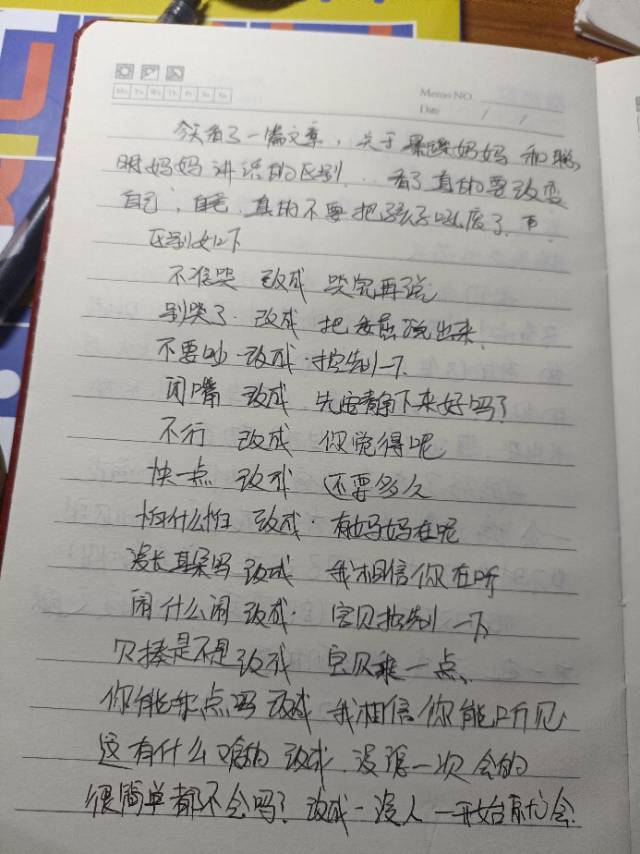 Mo Tu We Th Fr Sa Su
Memo NO
Date / /
今天看了一篇文章，关于暴躁妈妈和聪
明妈妈讲话的区别．看了真的要改变
自己，自己．真的不要把孩子吼废了．
区别如下
不准哭 改成 哭完再说
别哭了．改成 把委屈说出来．
不要吵·改成·控制一下．
闭嘴 改成 先安静下来好吗？
不行 改成 你觉得呢
快一点 改成 还要多久
怕什么怕 改成·有妈妈在呢
没长耳朵吗 改成 我相信你在听
闹什么闹 改成· 宝贝控制一下
欠揍是不是 改成 宝贝乖一点、
你能快点吗 改成 我相信你能听见
这有什么难的 改成．没事一次会的
很简单都不会吗？改成－没人一开始就会